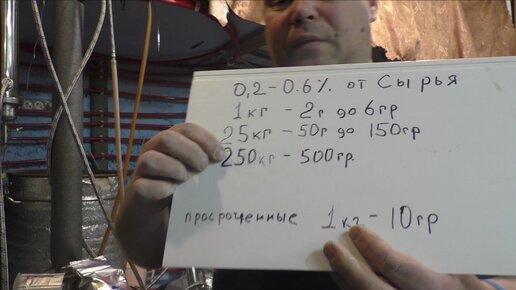 0,2-0.6% от Сырья
1кг - 2г до 6гр
25кг - 50г до 150гр
250кг - 500гр.
просроченные 1кг - 10гр